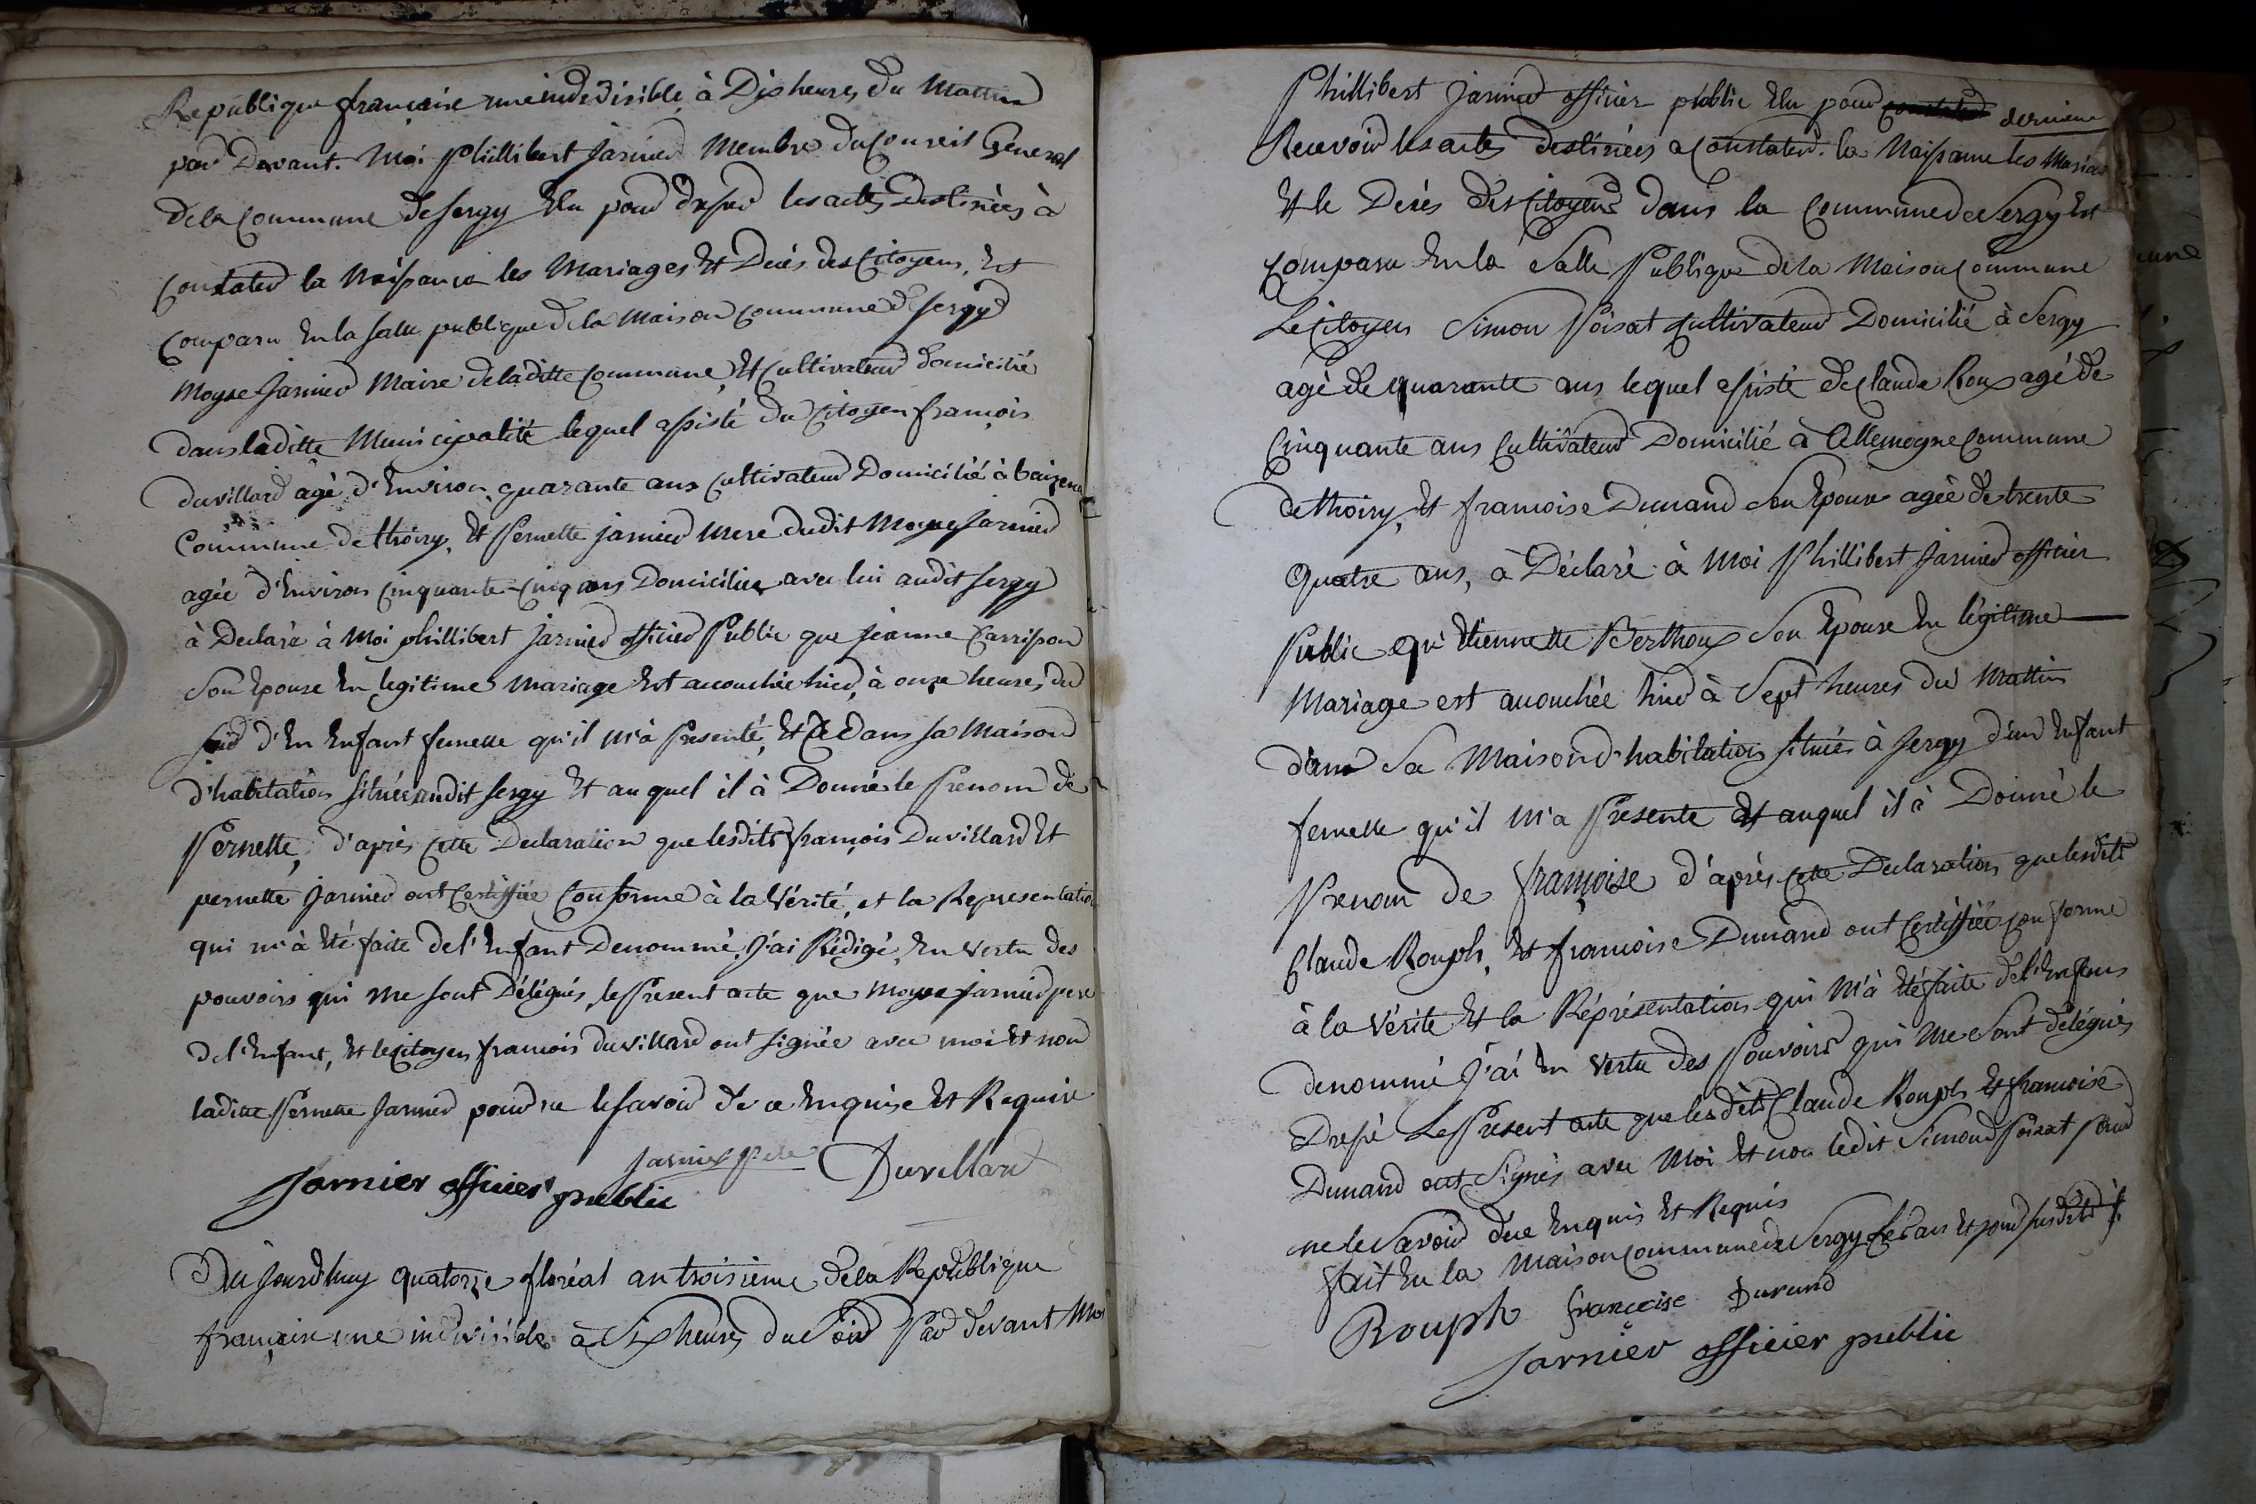 Republique française une indivisible, à Dix heures du Mattin
par Devant. Moi Phillibert Jarnier Membre du Conseil General
de la Commune de Sergy Elu pour dresser les actes Destinées à
Constater la Naissance les Mariages Et Decés des Citoyens, Est
Comparu En la salle publique de la Maison Commune de Sergy
Moyse Jarnier Maire de laditte Commune, Et Cultivateur domicilié
dans laditte Municipalité lequel assisté du Citoyen françois
duvillard agé d'Environ quarante ans Cultivateur Domicilié à
Commune de thoiry, Et Pernette Jarnier mere dudit Moyse Jarnier
agée d'Environ Cinquante-Cinq ans Domiciliée avec lui audit Sergy
à Declaré à Moi phillibert Jarnier officier Public que Jeanne Carrisson
Son Epouse En legitime Mariage Est accouchée hier, à onze heures du
soir d'En Enfant femelle qu'il m'a Presenté, Et Ce dans sa Maison
d'habitation située audit Sergy Et auquel il à Donnée le Prenom de
Pernette, d'après Cette Declaration que lesdits françois Duvillard Et
pernette Jarnier ont Certiffiée Conforme à la Vérité, et la Representation
qui m'à Eté faite de l'Enfant Denommé, J'ai Rédigé, En vertu des
pouvoirs qui me sont Délégués, le Present acte que Moyse Jarnier pere
de l'Enfant, Et le Citoyen francois duvillard ont signée avec moi Et non
laditte Pernette Jarnier pour ne le savoir de ce Enquise Et Requise
Jarnier officier public Jarnier pere Duvillard
Du Jourd'huy quatorze floréal an troisieme de la Republique
française une indivisible à Six heures du Soir Par devant Moi
Phillibert Jarnier officier public Elu pour
Recevoir les actes destinées a Constater. la Naissance les Mariages
Et le Decés des Citoyens dans la Commune de Sergy Est
Comparu En la Salle Publique de la Maison Commune
Le Citoyen Simon Poisat Cultivateur Domicilié à Sergy
agé de quarante ans lequel assisté de Claude Roux agé de
Cinquante ans Cultivateur Domicilié à Allemogne Commune
de thoiry, Et francoise Dunand Son Epouse agée de trente
Quatre ans, à Déclaré à Moi Phillibert Jarnier officier
Public qu'Etiennette Berthoux Son Epouse En légitime
Mariage est accouchée hier à Sept heures du Mattin
dans Sa Maison d'habitation située à Sergy d'un Enfant
femelle qu'il m'a Presente Et auquel il à Donné le
Prenom de françoise d'après Cette Declaration que lesdits
Claude Rouph, Et francoise Dunand ont Certiffiée Conforme
à la Vérite Et la Réprésentation qui m'à Eté faite de l'Enfans
denommé J'ai En Vertu des Pouvoirs qui me Sont délégués
Dressé Le Present acte que lesdits Claude Rouph Et francoise
Dunand ont Signés avec Moi Et non ledit Simond Poisat Pour
ne le Savoir de ce Enquis Et Requis
fait En la Maison Commune de Sergy les an Et jour susdits
Rouph françoise Dunand
Jarnier officier public